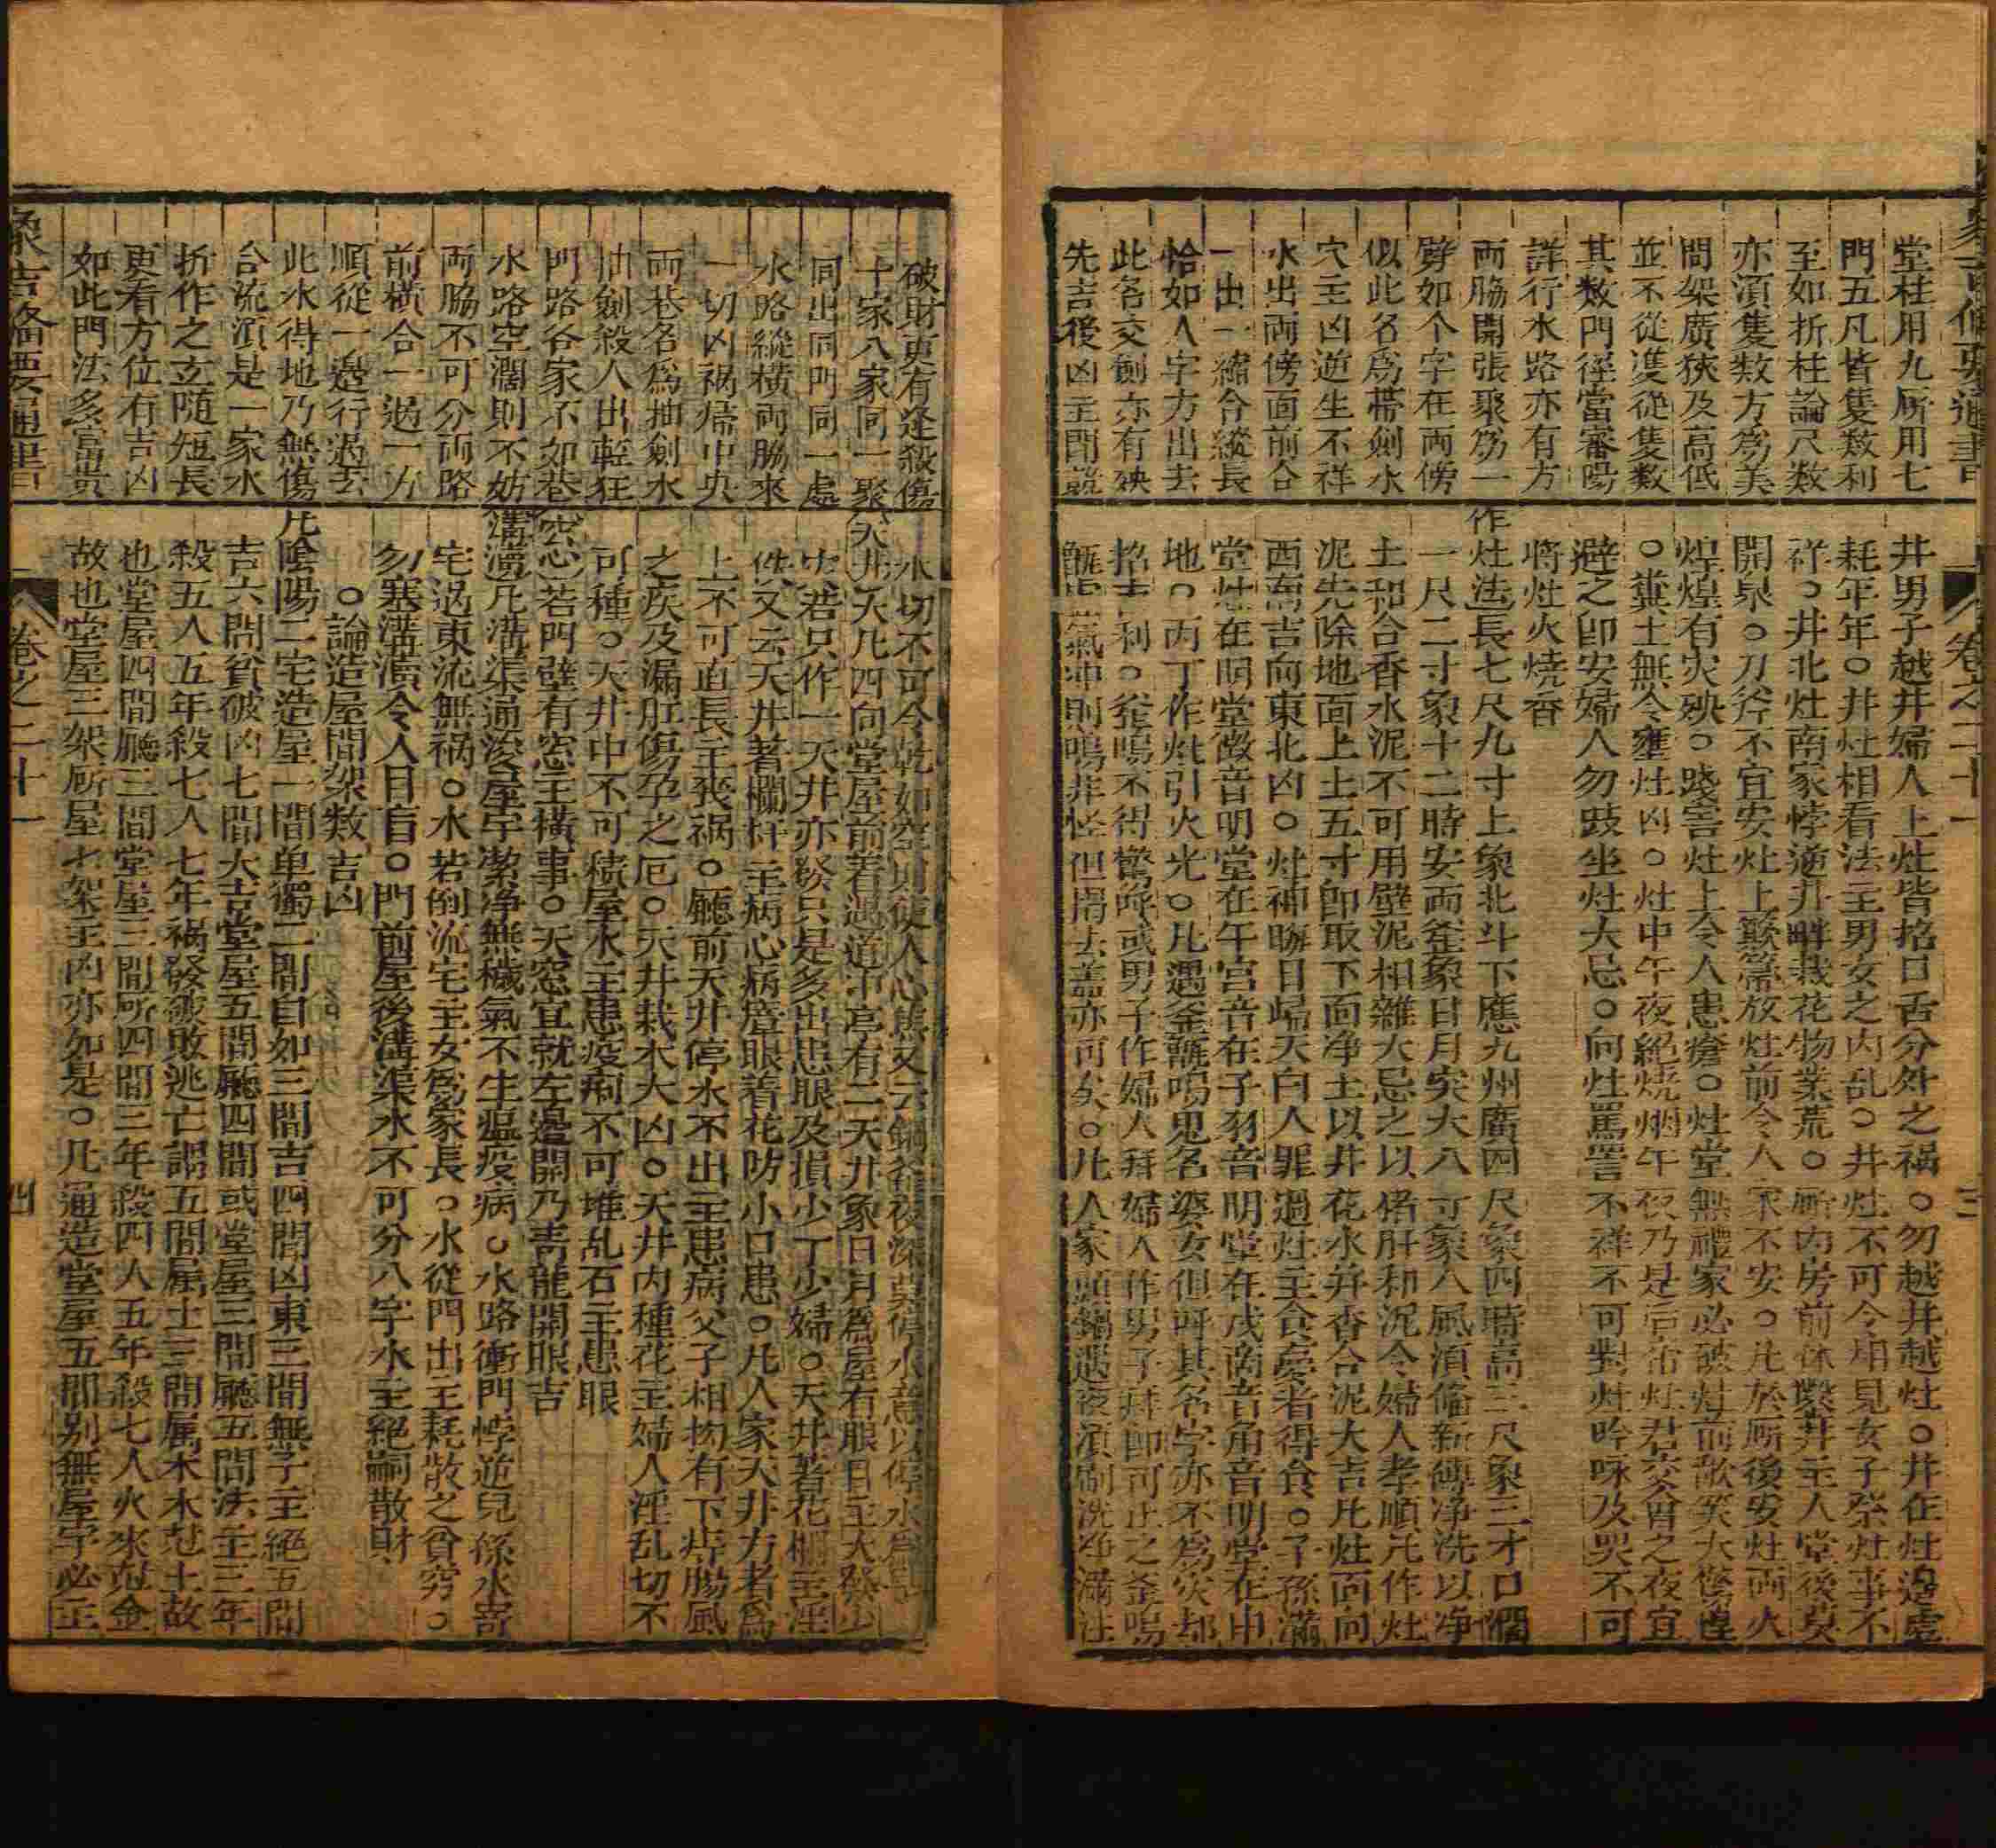 象吉備要通書
堂柱用九廚用七
門五凡皆隻数利
至如折柱論尺数
亦湏隻数方為美
間架廣狹及高低
並不從䨇從隻数
其数門徑當審陽
詳行水路亦有方
両脇開張聚為一
穿如个字在両傍
似此名為帶劍水
穴主凶逆生不祥
水出両傍面前合
一出一縮合縱長
恰如人字方出去
此各交劍亦有殃
先吉後凶主閗競
井男子越井婦人上灶皆招口舌分外之禍○勿越井越灶○井在灶邉虛
耗年年○井灶相看法主男女之内乱○井灶不可令相見女子祭灶事不
祥○井北灶南家悖逆井畔栽花物業荒○廚内房前休鑿井主人堂後莫
開泉○刀斧不宜安灶上簸箒放灶前令人家不安○凡於廚後安灶両火
煌煌有灾殃○踐害灶上令人患瘡○灶堂無禮家必破灶前歌笑大驚惶
○糞土無令壅灶凶○灶中午夜絕燒烟午夜乃是
避之即安婦人勿跂坐灶大忌○向灶罵詈不祥不可對灶吟咏及哭不可
将灶火焼香
作灶法長七尺九寸上象北斗下應九州廣四尺象四時高三尺象三才口濶
一尺二寸象十二時安両釜象日月突大八寸象八風湏備新磚净洗以净
土和合香水泥不可用壁泥相雜大忌之以猪肝和泥令婦人孝順凡作灶
泥先除地面上土五寸即取下面净土以井花水并香合泥大吉凡灶面向
西南吉向東北凶○灶神晦日歸天白人罪過灶主食
堂灶在明堂徵音明堂在午宮音在子羽音明堂在戌商音角音明堂在申
地○丙丁作灶引火光○凡遇釜甑鳴鬼名婆女但呼其名字亦不為灾却
招吉利○釜鳴不得驚呼或男子作婦人拜婦人作男子拜即可止之釜鳴
甑
破財更有逢殺傷
十家八家同一聚
同出同門同一處
水路縱横両脇來
一切凶禍歸中央
両巷名為抽劍水
抽劍殺人出輕狂
門路各家不如巷
水路空濶則不妨
両脇不可分両路
前横合一過一方
順從一邉行過去
此水得地乃無傷
合流湏是一家水
折作之立隨短長
更看方位有吉凶
如此門法多富貴
水切不可令乾如空則使人心焦又云鍋釜夜深莫停水
天井天凡四向堂屋前若過道中亭有二天井象日月為屋有眼目主大發
若只作一天井亦發只是多出患眼及損少丁少婦○天井著花欄主淫
佚又云天井著欄杆主病心病詹眼着花防小口患○凡人家天井方者為
上不可直長主丧禍○廳前天井停水不出主患病父子相拘有下痔腸風
之疾及漏肛傷孕之厄○天井栽木大凶○天井内種花主婦人淫乱切不
可種○天井中不可積屋水主患疫痢不可堆乱石主患眼
窓心若門壁有窓主横事○天窓宜就左邉開乃青龍開眼吉
溝瀆凡溝渠通浚屋宇潔净無穢氣不生瘟疫病○水路衝門悖逆兒孫水害
宅過東流無禍○水若倒流宅主女為家長○水從門出主耗散之貧窮○
勿塞溝瀆令人目盲○門前屋後溝渠水不可分八字水主絕嗣散財
○論造屋間架数吉凶
凡陰陽二宅造屋一間单獨二間自如三間吉四間凶東三間無子主絕五間
吉六間貧破凶七間大吉堂屋五間廳四間或堂屋三間廳五間法主三年
殺五人五年殺七人七年禍發破敗逃亡謂五間属土三間属木木尅土故
也堂屋四間廳三間堂屋三間所四間三年殺四人五年殺七人火來尅金
故也堂屋三架廚屋七架主凶亦如是○凡通造堂屋五間别無屋字必正
象吉備要通書
卷之二十一
卷之二十一
三
四